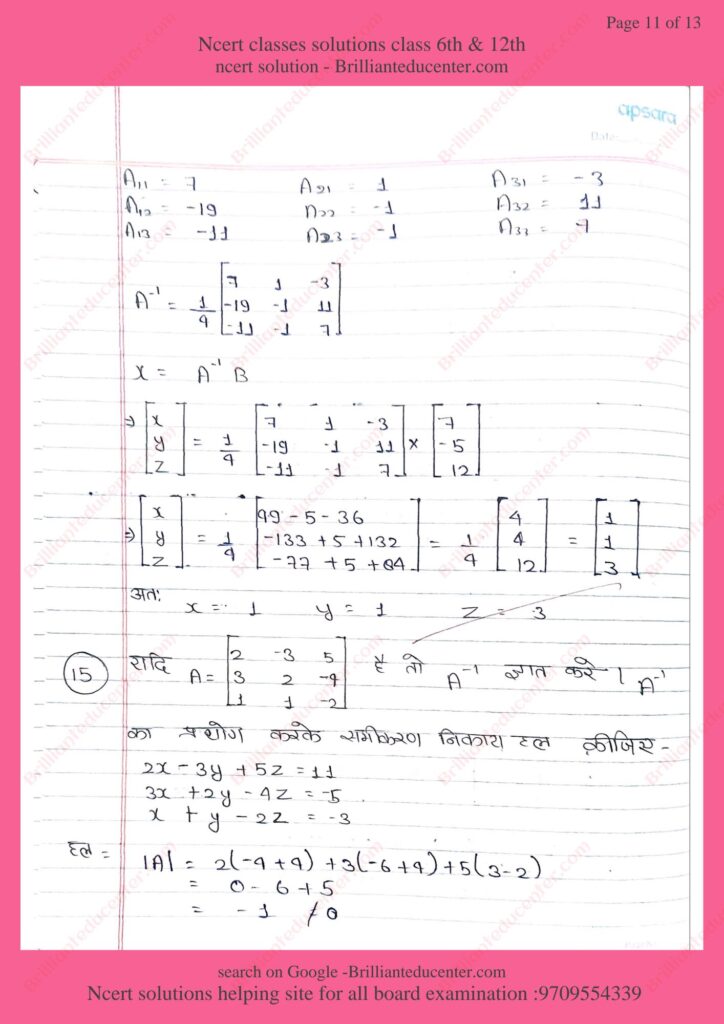 Page 11 of 13
Ncert classes solutions class 6th & 12th
ncert solution - Brillianteducenter.com
apsara
Date:
A₁₁ = 7 A₂₁ = 1 A₃₁ = -3
A₁₂ = -19 A₂₂ = -1 A₃₂ = 11
A₁₃ = -11 A₂₃ = -1 A₃₃ = 7
A⁻¹ = 1/4 [7 1 -3; -19 -1 11; -11 -1 7]
X = A⁻¹ B
⇒ [x; y; z] = 1/4 [7 1 -3; -19 -1 11; -11 -1 7] × [7; -5; 12]
⇒ [x; y; z] = 1/4 [49 - 5 - 36; -133 + 5 + 132; -77 + 5 + 84] = 1/4 [4; 4; 12] = [1; 1; 3]
अतः
x = 1 y = 1 z = 3
15 यदि A = [2 -3 5; 3 2 -4; 1 1 -2] है तो A⁻¹ ज्ञात करे। A⁻¹
का प्रयोग करके समीकरण निकाय हल कीजिए -
2x - 3y + 5z = 11
3x + 2y - 4z = -5
x + y - 2z = -3
हल = |A| = 2(-4 + 4) + 3(-6 + 4) + 5(3 - 2)
= 0 - 6 + 5
= -1 ≠ 0
search on Google -Brillianteducenter.com
Ncert solutions helping site for all board examination :9709554339